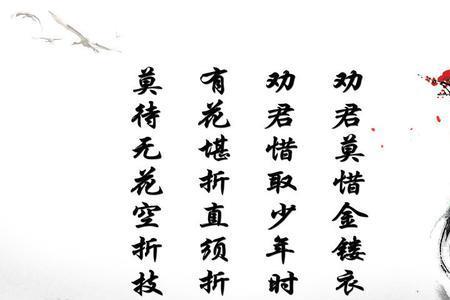 劝君莫惜金镂衣
劝君惜取少年时
有花堪折直须折
莫待无花空折技